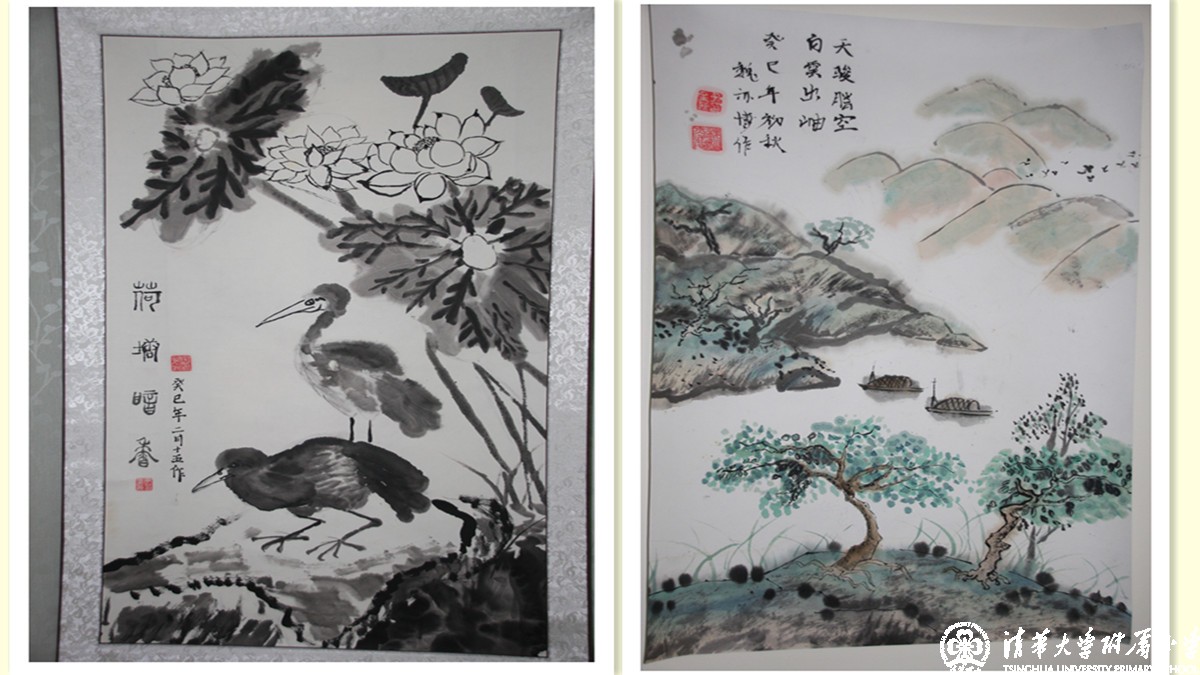 荷塘暗香
癸巳年二月十五作
天骏腾空
白 出岫
癸巳年初秋
魏亦博作
清華大学附属小学
TSINGHUA UNIVERSITY PRIMARY